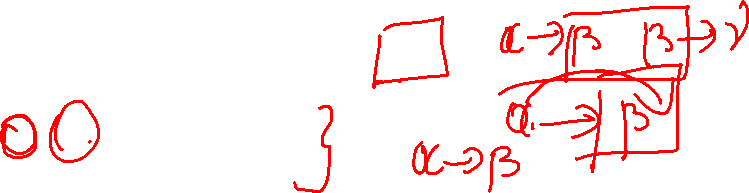 α→β β→γ
α→β
α→β
}